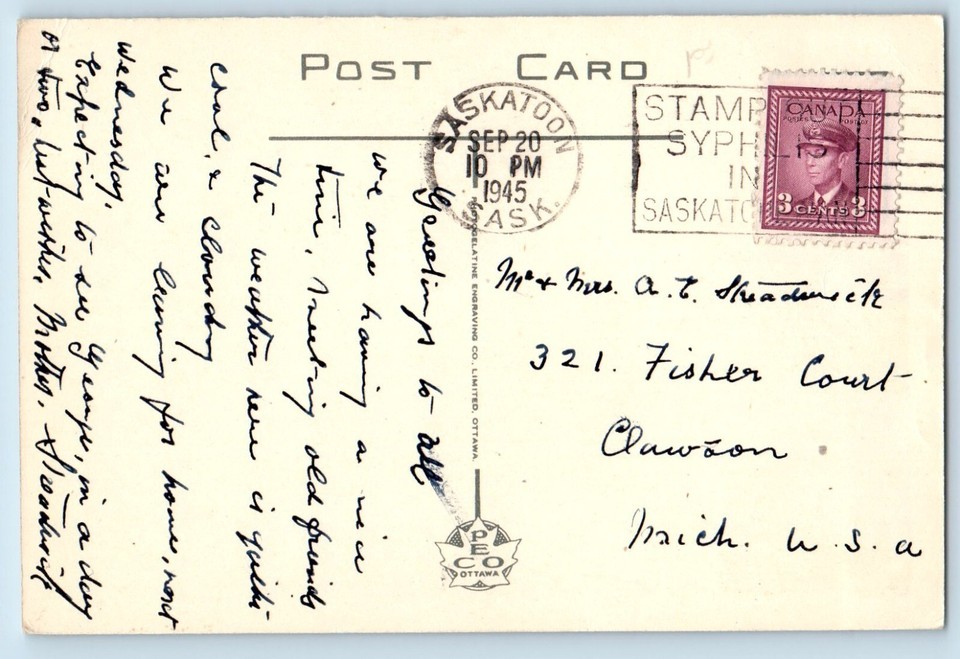 POST CARD
SASKATOON
SEP 20
10 PM
1945
SASK.
STAMP
SYPH IS
IN
SASKATC
CANADA
POSTES POSTAGE
3 CENTS 3
Greetings to all
we are having a nice
time, meeting old friends
The weather here is quite
cool, & cloudy
We are leaving for home, next
Wednesday,
Expecting to see George, in a day
or two, best wishes, Mother.
Mr & Mrs. A. E. Steadwick
321. Fisher Court
Clawson
Mich. U. S. A
GELATINE ENGRAVING CO. LIMITED, OTTAWA.
PECO
OTTAWA